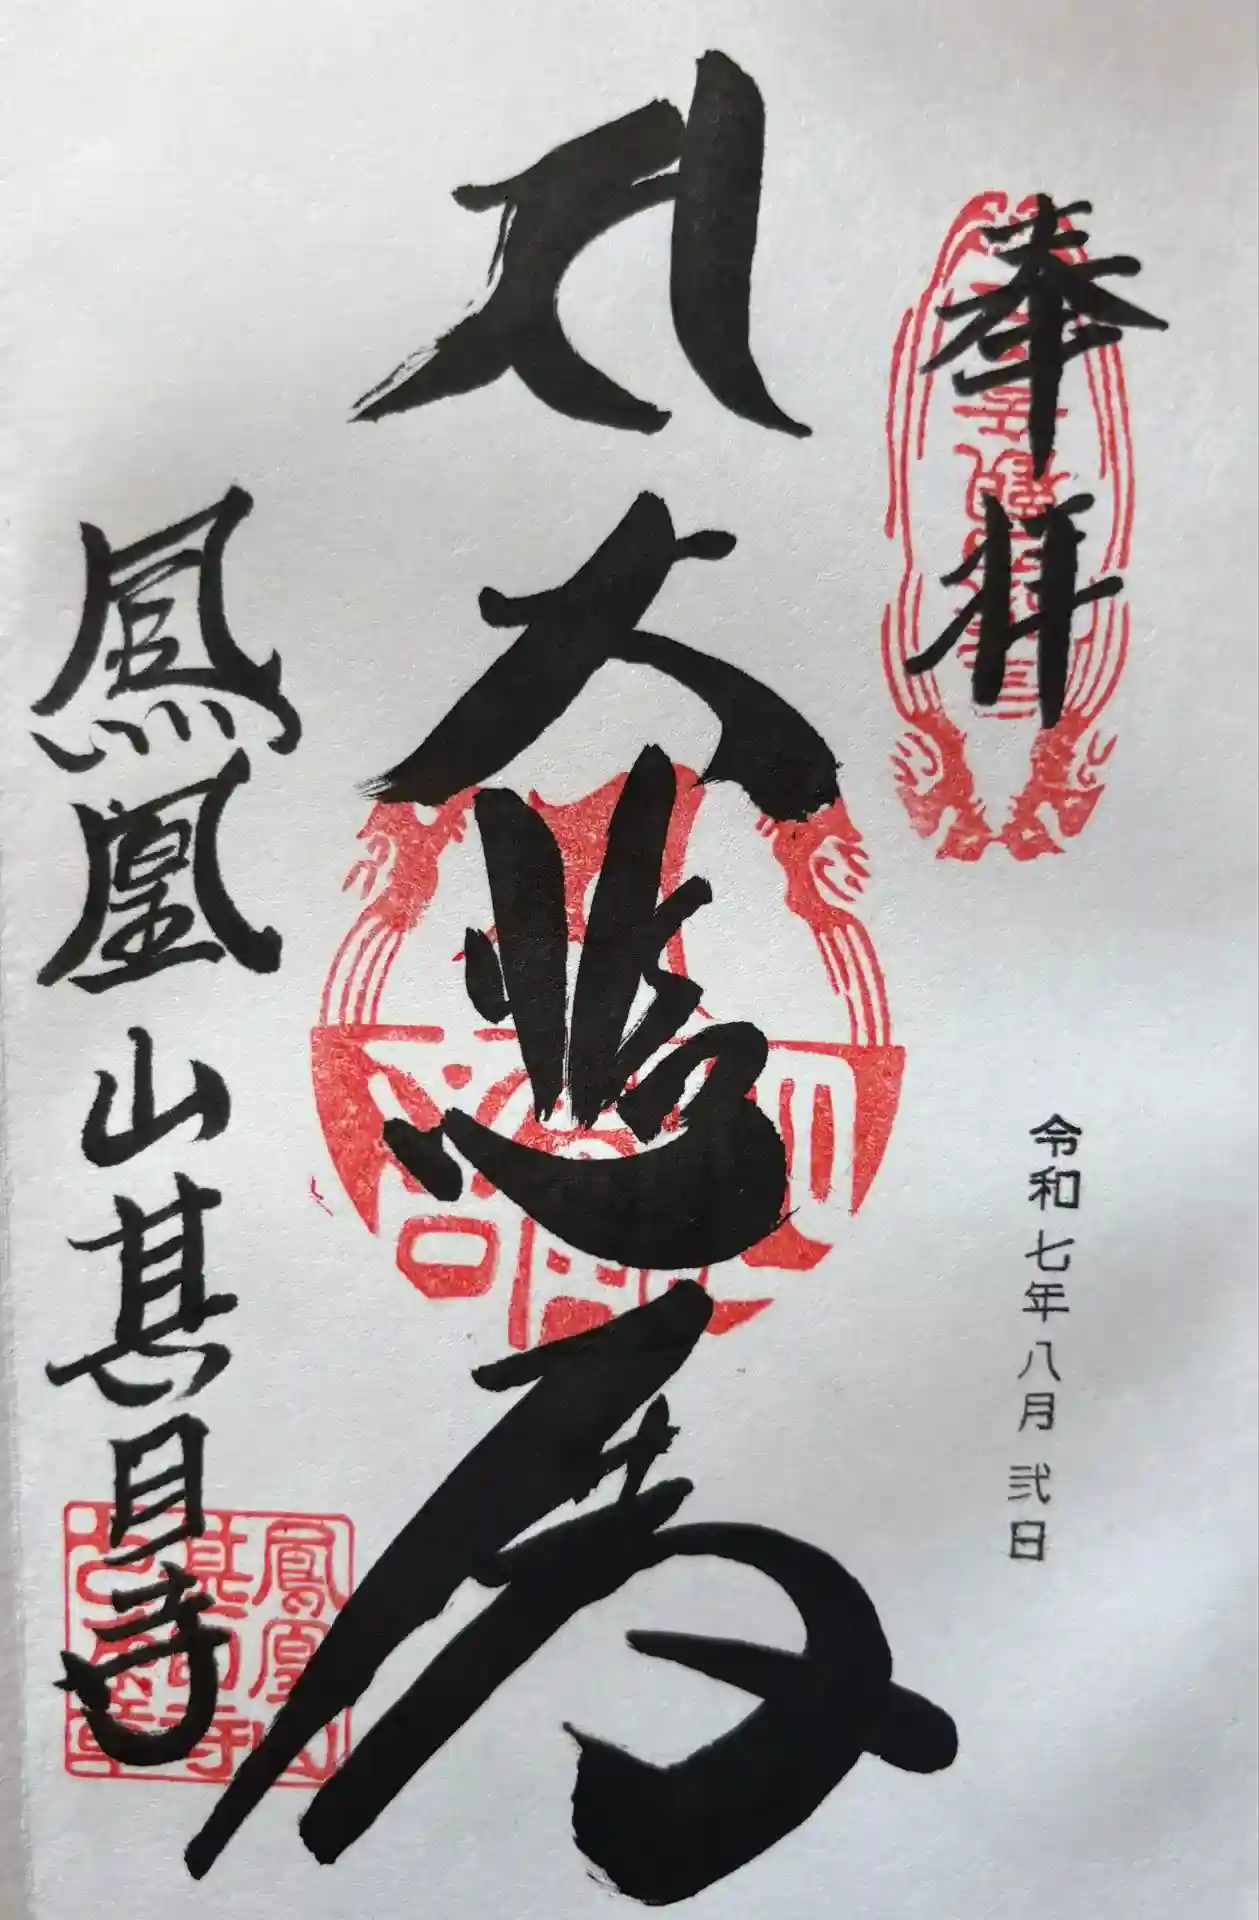 奉拝
令和七年八月弐日
大悲殿
鳳凰山甚目寺
鳳凰山
甚目寺